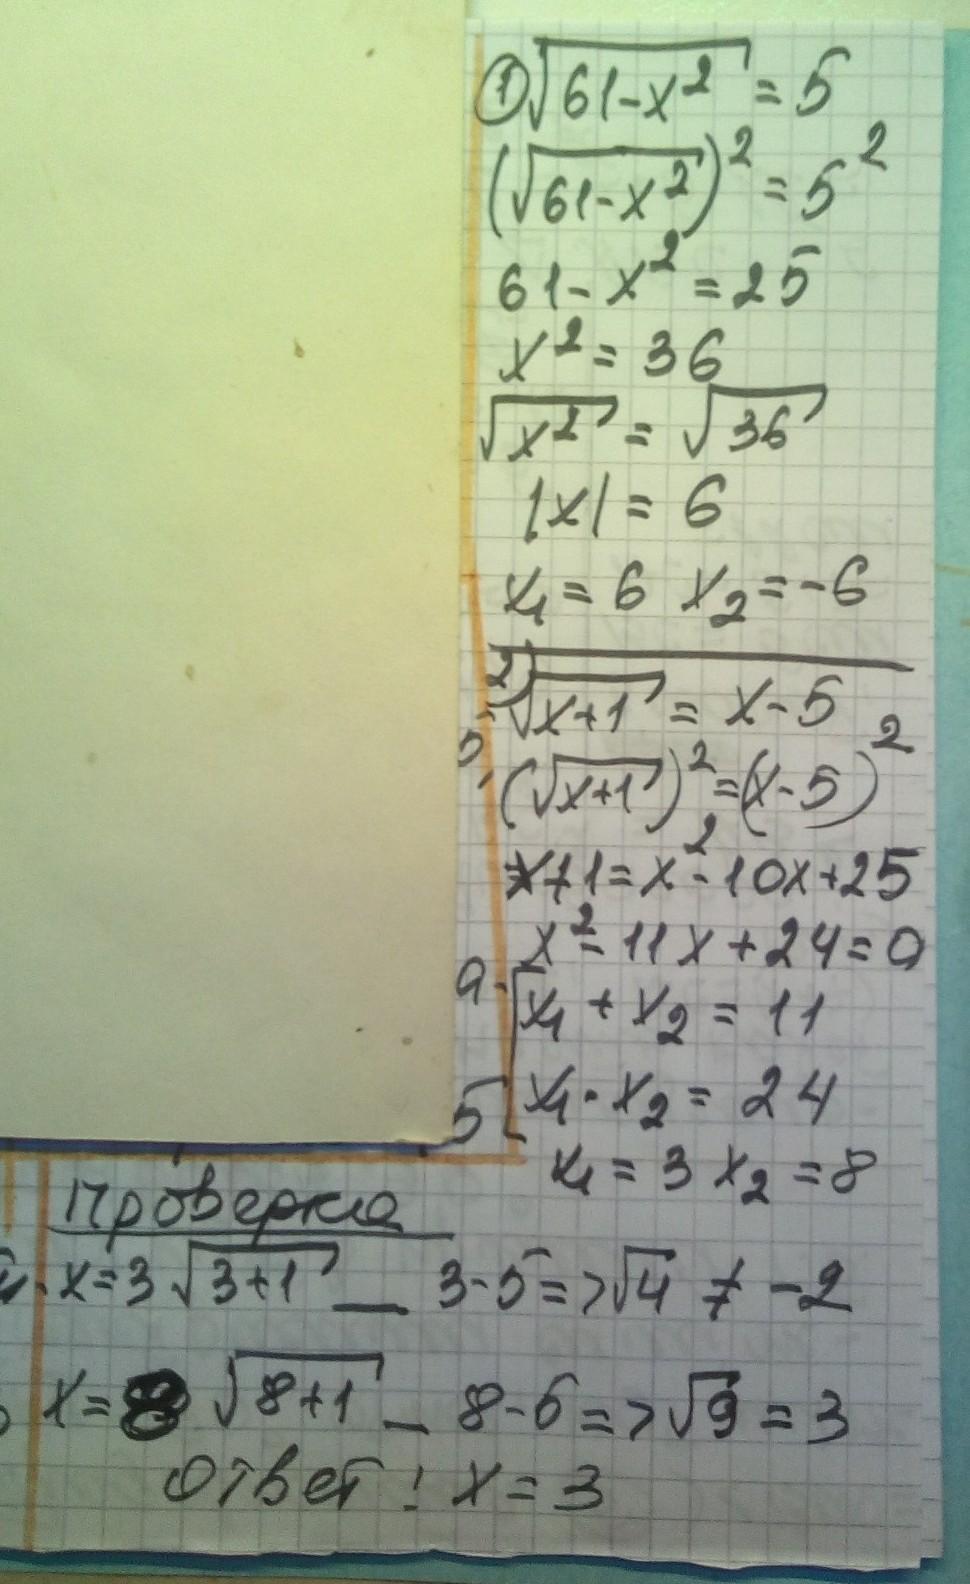 ① √61-x² = 5
(√61-x²)² = 5²
61-x² = 25
x² = 36
√x² = √36
|x| = 6
x₁ = 6 x₂ = -6
2) √x+1 = x-5
(√x+1)² = (x-5)²
x+1 = x²-10x+25
x²-11x+24=0
x₁ + x₂ = 11
x₁ · x₂ = 24
x₁ = 3 x₂ = 8
Проверка
x=3 √3+1 — 3-5 => √4 ≠ -2
x=8 √8+1 — 8-5 => √9 = 3
Ответ: x = 3